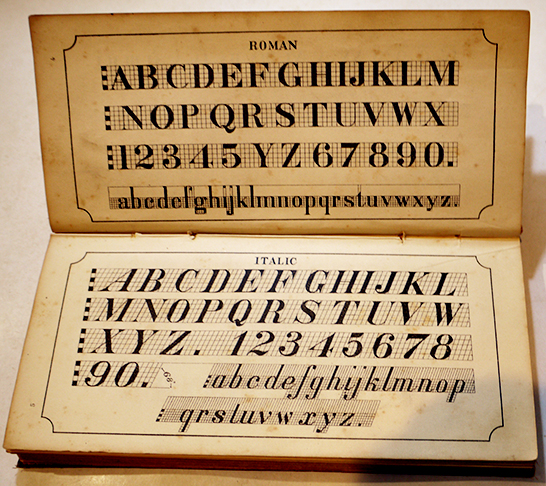 ROMAN
ABCDEFGHIJKLM
NOPQRSTUVWX
12345YZ67890.
abcdefghijklmnopqrstuvwxyz.
ITALIC
ABCDEFGHIJKL
MNOPQRSTUVW
XYZ. 12345678
90. 68° abcdefghijklmnop
qrstuvwxyz.